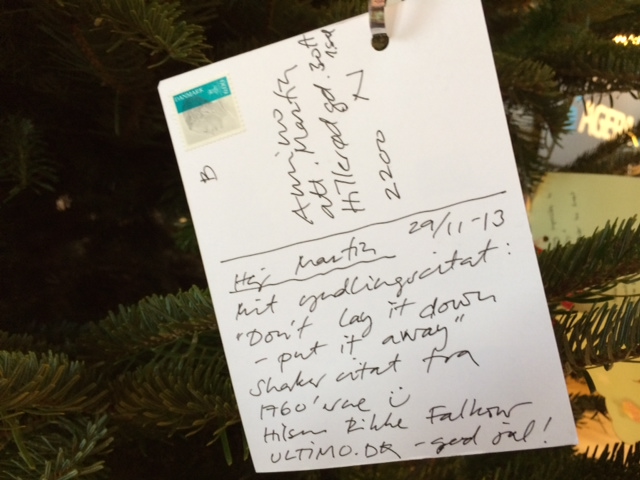 DANMARK
B
Amino
att. Martin
Hillerødgd. 30A
1.sal
2200 N
29/11-13
Hej Martin
Mit yndlingscitat:
"Don't lay it down
- put it away"
Shaker citat fra
1760'erne ü
Hilsen Rikke
ULTIMO.DK - god jul!